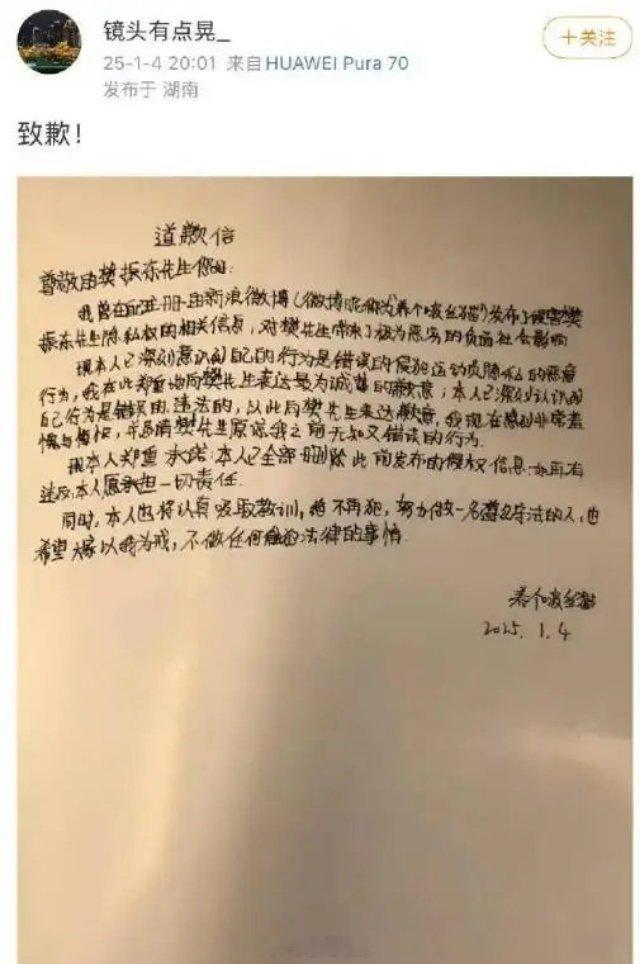 镜头有点晃_
+关注
25-1-4 20:01 来自 HUAWEI Pura 70
发布于 湖南
致歉!
道歉信
尊敬的樊振东先生您好:
我曾在 注册的新浪微博(微博昵称为养个啵丝猫)发布了侵害樊
振东先生隐私权的相关信息,对樊先生带来了极为恶劣的负面社会影响
现本人已深刻意识到自己的行为是错误的侵犯运动员隐私的恶意
行为,我在此郑重地向樊先生表达最为诚挚的歉意;本人已深刻认识到
自己行为是错误的、违法的,以此向樊先生表达歉意,我现在感到非常羞
愧与懊悔,并恳请樊先生原谅我之前无知又错误的行为.
现本人郑重承诺:本人已全部删除此前发布的侵权信息.如再有
违反,本人愿承担一切责任.
同时,本人也将认真吸取教训,绝不再犯,努力做一名遵纪守法的人,也
希望大家以我为戒,不做任何触犯法律的事情.
养个啵丝猫
2025.1.4